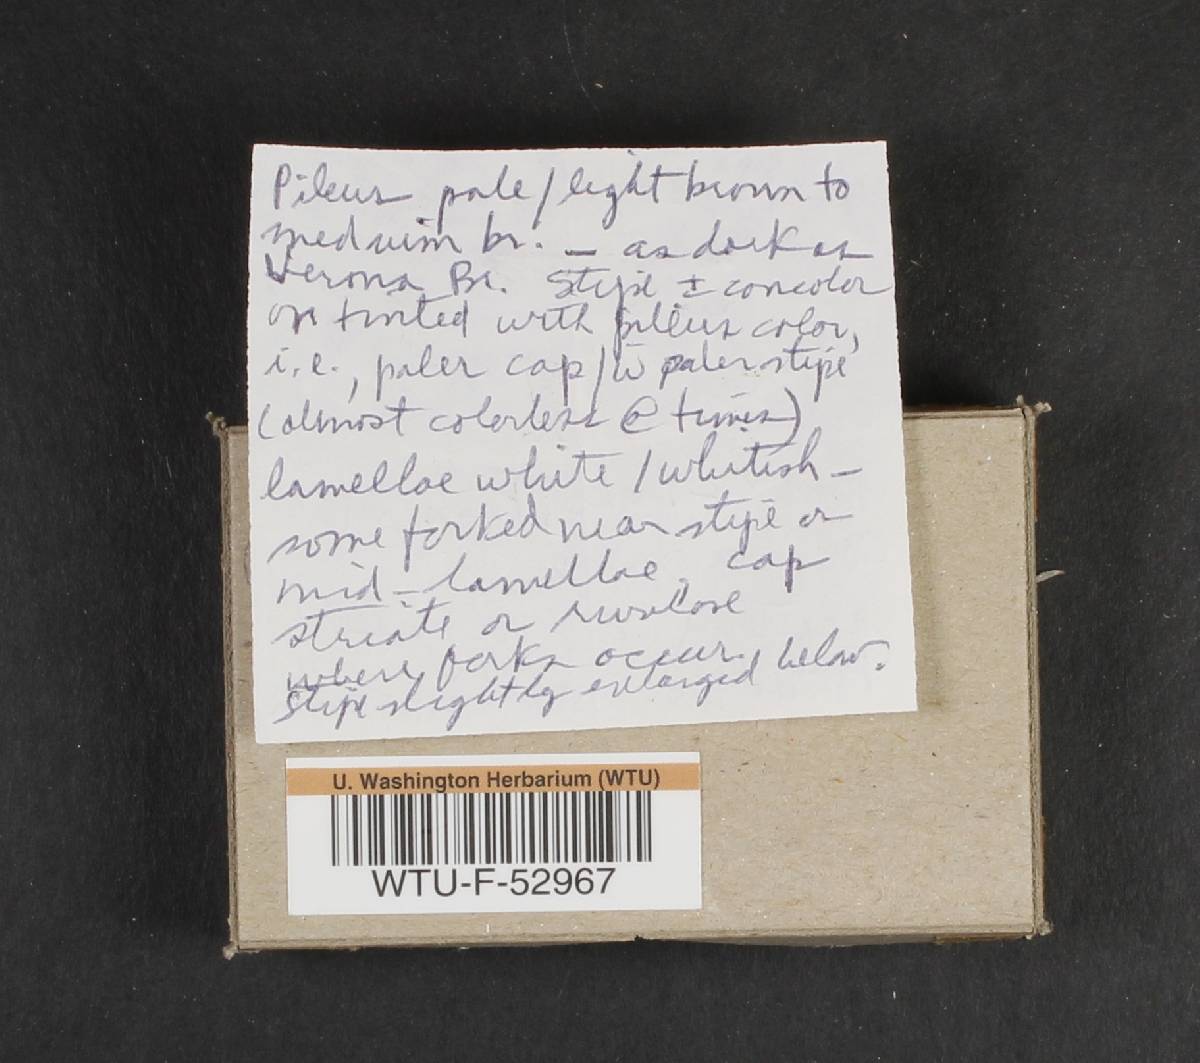 Pileus pale/light brown to
medium br. – as dark as
Verona Br. Stipe ± concolor
or tinted with pileus color,
i.e., paler cap/w̄ paler stipe
(almost colorless @ times)
lamellae white/whitish –
some forked near stipe or
mid-lamellae, cap
striate or rivulose
where forks occur.
Stipe slightly enlarged below.
U. Washington Herbarium (WTU)
WTU-F-52967